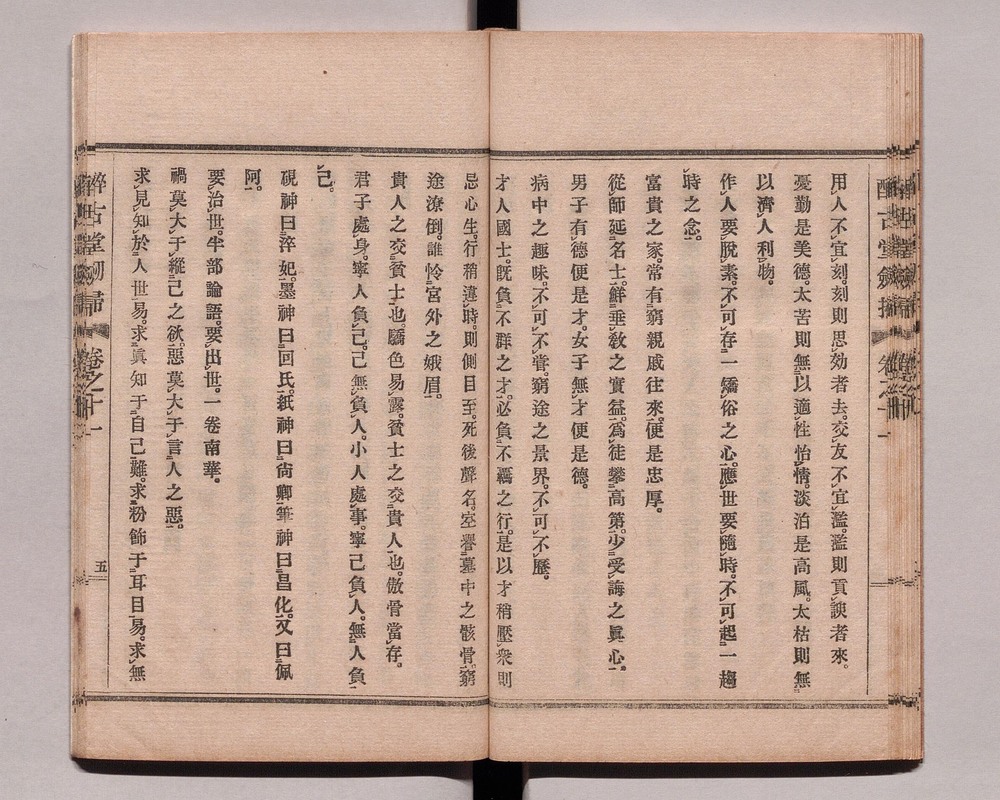 用人不宜刻。刻則思効者去。交友不宜濫。濫則貢諛者來。
憂勤是美德。太苦則無以適性怡情。淡泊是高風。太枯則無
以濟人利物。
作人要脫素。不可存一矯俗之心。應世要隨時。不可起一趨
時之念。
富貴之家。常有窮親戚往來。便是忠厚。
從師延名士。鮮垂敎之實益。爲徒攀高第。少受誨之眞心。
男子有德便是才。女子無才便是德。
病中之趣味。不可不嘗。窮途之景界。不可不歷。
才人國士。旣負不群之才。必負不羈之行。是以才稍壓衆則
忌心生。行稍違時。則側目至。死後聲名。空譽墓中之骸骨。窮
途潦倒。誰怜宮外之娥眉。
貴人之交貧士也。驕色易露。貧士之交貴人也。傲骨當存。
君子處身。寧人負己。己無負人。小人處事。寧己負人。無人負
己。
硯神曰淬妃。墨神曰回氏。紙神曰尙卿。筆神曰昌化。又曰佩
阿。
要治世。半部論語。要出世。一卷南華。
禍莫大于縱己之欲。惡莫大于言人之惡。
求見知於人世易。求眞知于自己難。求粉飾于耳目易。求無
五